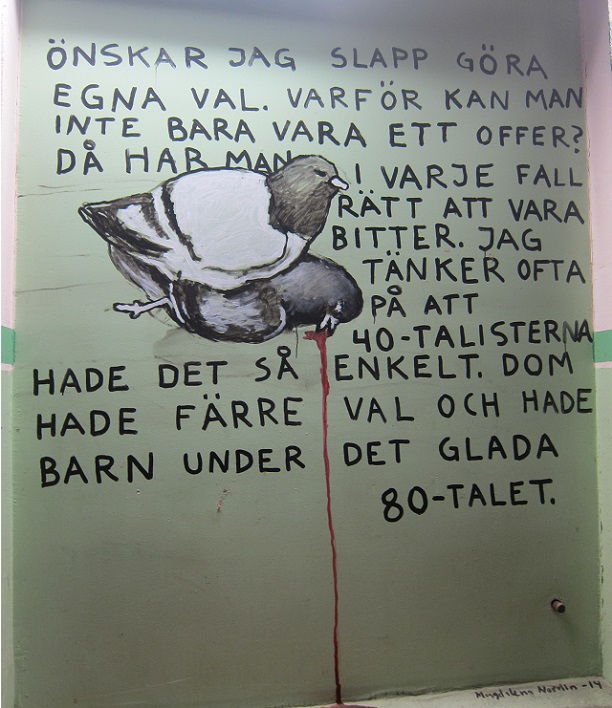 ÖNSKAR JAG SLAPP GÖRA
EGNA VAL. VARFÖR KAN MAN
INTE BARA VARA ETT OFFER?
DÅ HAR MAN I VARJE FALL
RÄTT ATT VARA
BITTER. JAG
TÄNKER OFTA
PÅ ATT
40-TALISTERNA
HADE DET SÅ ENKELT. DOM
HADE FÄRRE VAL OCH HADE
BARN UNDER DET GLADA
80-TALET.
Magdalena Nordin -14